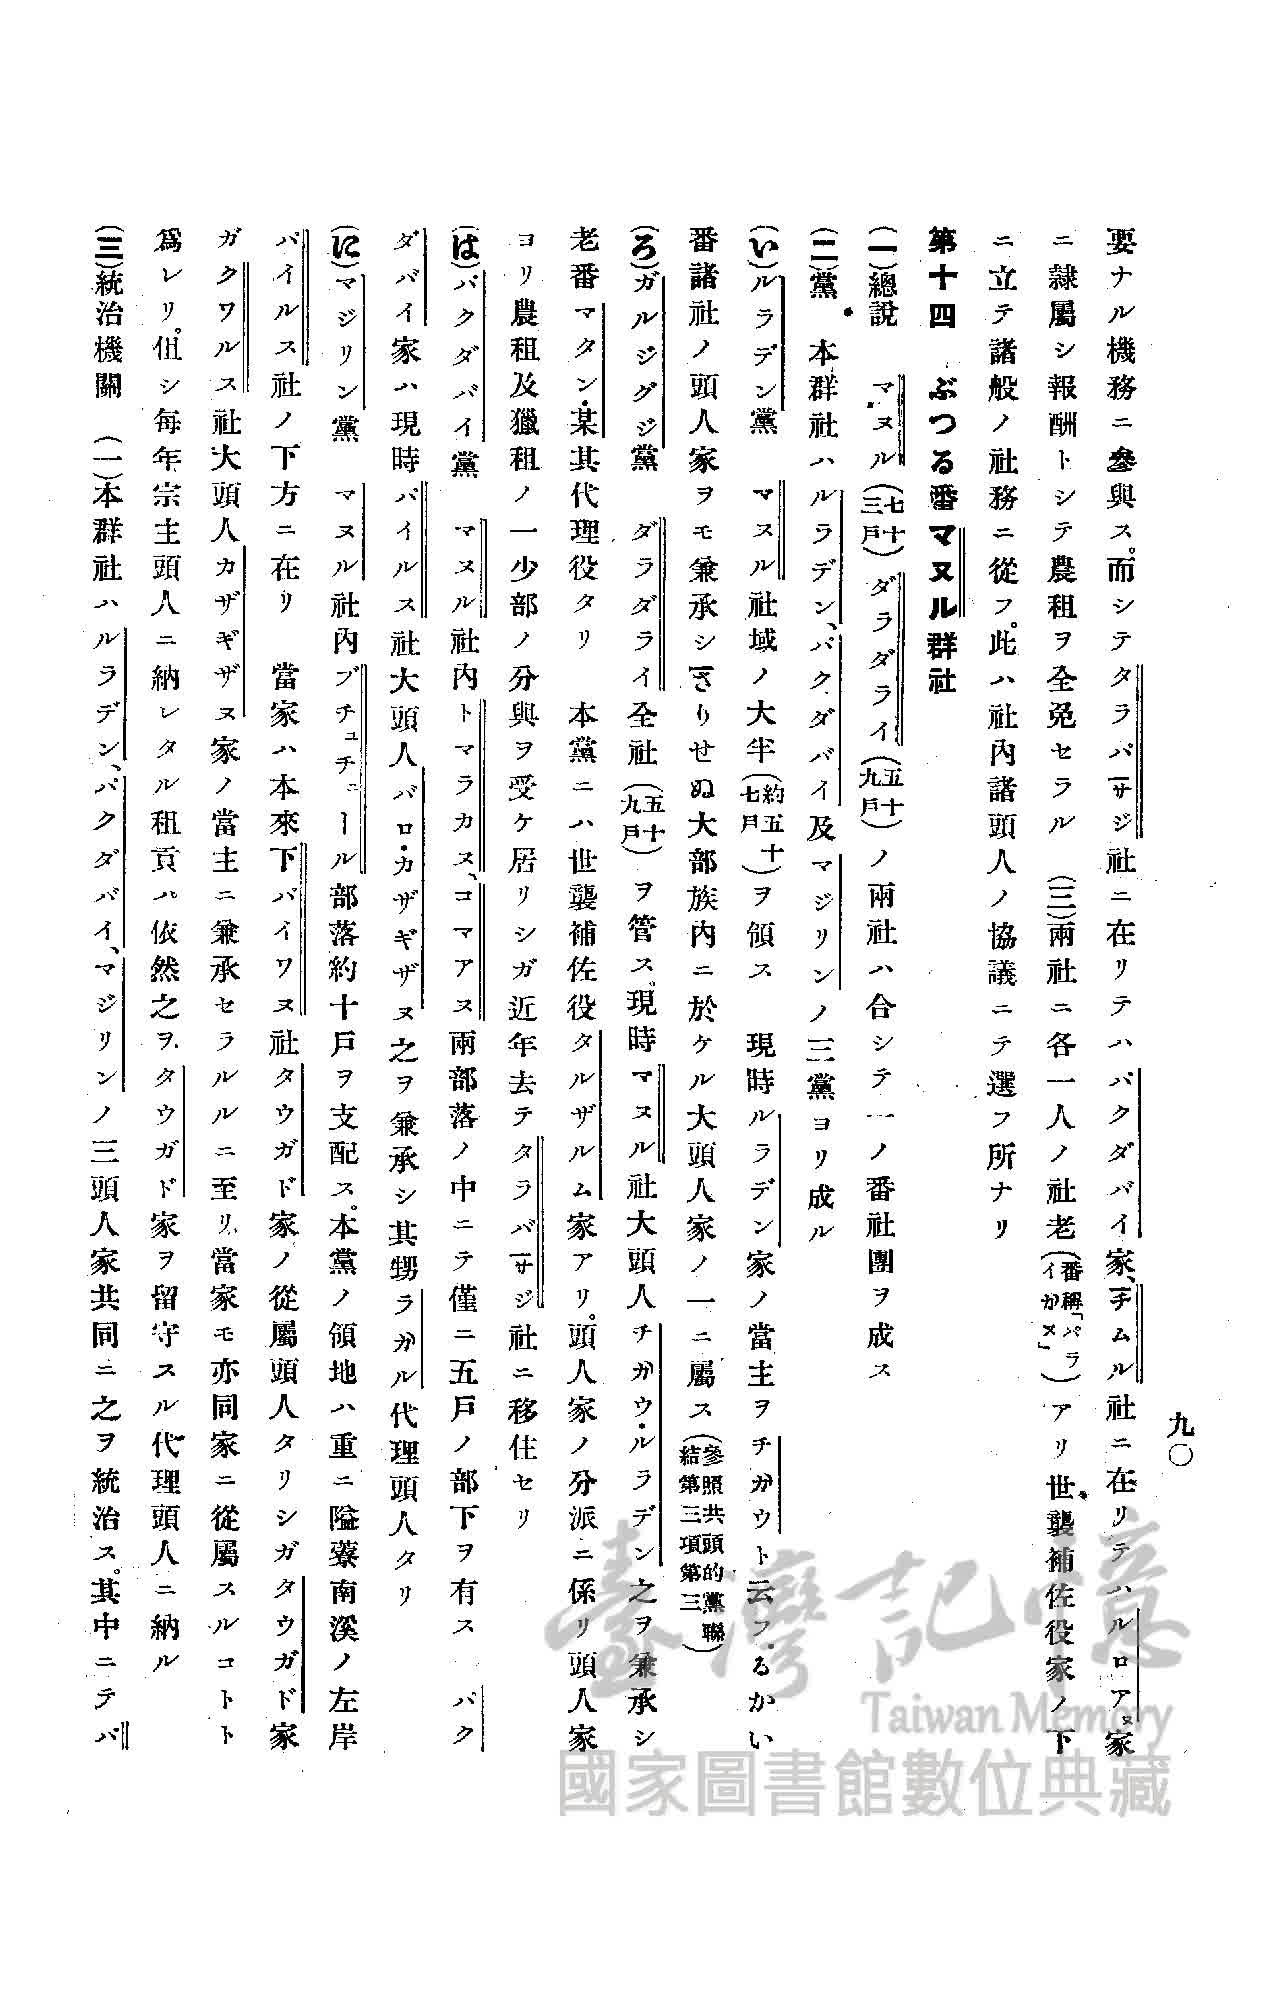 九〇
要ナル機務ニ參與ス。而シテタラバサジ社ニ在リテハバクダバイ家、チムル社ニ在リテハルロアヌ家
ニ隷屬シ報酬トシテ農租ヲ全免セラル (三)兩社ニ各一人ノ社老(番稱「パライがメ」)アリ世襲補佐役家ノ下
ニ立テ諸般ノ社務ニ從フ。此ハ社內諸頭人ノ協議ニテ選フ所ナリ
第十四 ぶつる番マヌル群社
(一)總說 マヌル(七十三戶)ダラダライ(五十九戶)ノ兩社ハ合シテ一ノ番社團ヲ成ス
(二)黨 本群社ハルラデン、バクダバイ及マジリンノ三黨ヨリ成ル
(い)ルラデン黨 マヌル社域ノ大半(約五十七戶)ヲ領ス 現時ルラデン家ノ當主ヲチガウト云フ、るかい
番諸社ノ頭人家ヲモ兼承シさりせぬ大部族內ニ於ケル大頭人家ノ一ニ屬ス(參照共頭的黨聯結第三項第三)
(ろ)ガルジグジ黨 ダラダライ全社(五十九戶)ヲ管ス。現時マヌル社大頭人チガウ・ルラデン之ヲ兼承シ
老番マタン・某其代理役タリ 本黨ニハ世襲補佐役タルザルム家アリ。頭人家ノ分派ニ係リ頭人家
ヨリ農租及獵租ノ一少部ノ分與ヲ受ケ居リシガ近年去テタラバサジ社ニ移住セリ
(は)バクダバイ黨 マヌル社內トマラカス、コマアス兩部落ノ中ニテ僅ニ五戶ノ部下ヲ有ス バク
ダバイ家ハ現時パイルス社大頭人バロ・カザギザヌ之ヲ兼承シ其甥ラガル代理頭人タリ
(に)マジリン黨 マヌル社內ブチュチュール部落約十戶ヲ支配ス。本黨ノ領地ハ重ニ隘藔南溪ノ左岸
パイルス社ノ下方ニ在リ 當家ハ本來下パイワヌ社タウガド家ノ從屬頭人タリシガタウガド家
ガクワルス社大頭人カザギザヌ家ノ當主ニ兼承セラルルニ至リ、當家モ亦同家ニ從屬スルコトト
爲レリ。但シ每年宗主頭人ニ納レタル租貢ハ依然之ヲ、タウガド家ヲ留守スル代理頭人ニ納ル
(三)統治機關 (一)本群社ハルラデン、バクダバイ、マジリンノ三頭人家共同ニ之ヲ統治ス。其中ニテバ
臺灣記憶
Taiwan Memory
國家圖書館數位典藏